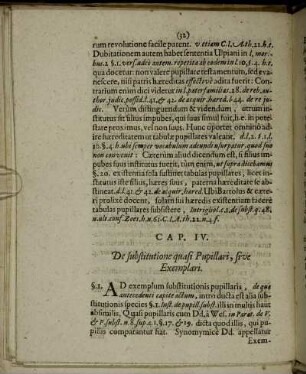 (52)
rum revolutione facile patent. v etiam C. l. A. th. 21. b. t.
Dubitationem autem habet sententia Ulpiani in l. mor-
bus. 2 §. 1. vers. adeò autem. repetita ab eodem in l. 10. §. 4. b. t.
qua docetur: non valere pupillare testamentum, sed eva-
nescere, nisi patris hæreditas effectivè adita fuerit: Con-
trarium enim dici videtur in l. paterfamilias. 28. de reb. au-
thor. jud. possid. l. 41. & 42. de acquir. hæred. b. 44. de re ju-
dic. Verum distinguendum & videndum, utrum insti-
tutus sit filius impubes, qui suus simul fuit, h. e. in pote-
state proximus, vel non suus. Hunc oportet omninò adi-
re hæreditatem ut tabulæ pupillares valeant. d. l. 2. §. 1. l.
10. §. 4. b. ubi semper vocabulum adeundi usurpatur, quod suo
non convenit: Cæterum aliud dicendum est, si filius im-
pubes suus institutus fuerit, tum enim, ut supra diximus
§. 20. ex istentia sola sustinet tabulas pupillares, licet
institutus iste filius, hæres suus, paterna hæreditate se ab-
stineat. d. l. 41. & 42. de acquir. hæred. Ubi Bartolus & cæte-
ri prolixè docent, solam sui hæredis existentiam facere
tabulas pupillares subsistere,
CAP. IV.
De substitutione quasi Pupillari, sive
Exemplari.
§. 1. AD exemplum substitutionis pupillaris, de qua
antecedenti capite actum, introducta est alia sub-
stitutionis species §. 1. Inst. de pupill. subst. illi in multis haut
absimilis. Quasi pupillaris cum Dd. à Wes. in Parat. de V.
& P. subst. n. 8. sup. c. 1. §. 17. & 19. dicta quod illis, qui pu-
pillis comparantur fiat. Synonymicè Dd. appellatur
Exem-